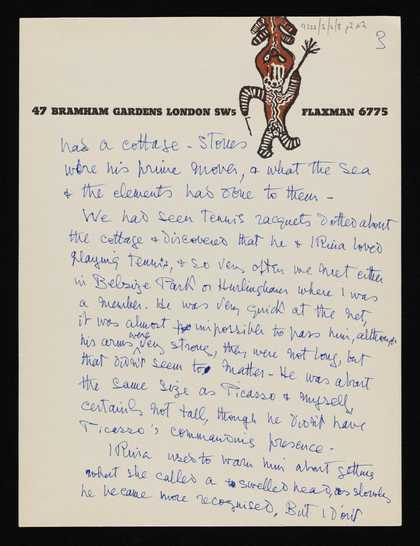 3
47 BRAMHAM GARDENS LONDON SW5 FLAXMAN 6775
has a cottage - Stones
were his prime mover, & what the sea
& the elements had done to them -
We had seen tennis racquets dotted about
the cottage & discovered that he & IRina loved
playing tennis, & so very often we meet either
in Belsize Park or Hurlingham where I was
a member. He was very quick at the net,
it was almost impossible to pass him, although
his arms were very strong, they were not long, but
that didn't seem to matter - He was about
the same size as Picasso & myself
certainly not tall, though he didn't have
Picasso's commanding presence -
IRina used to warn him about getting
what she called a swelled head, as slowly
he became more recognised, But I don't